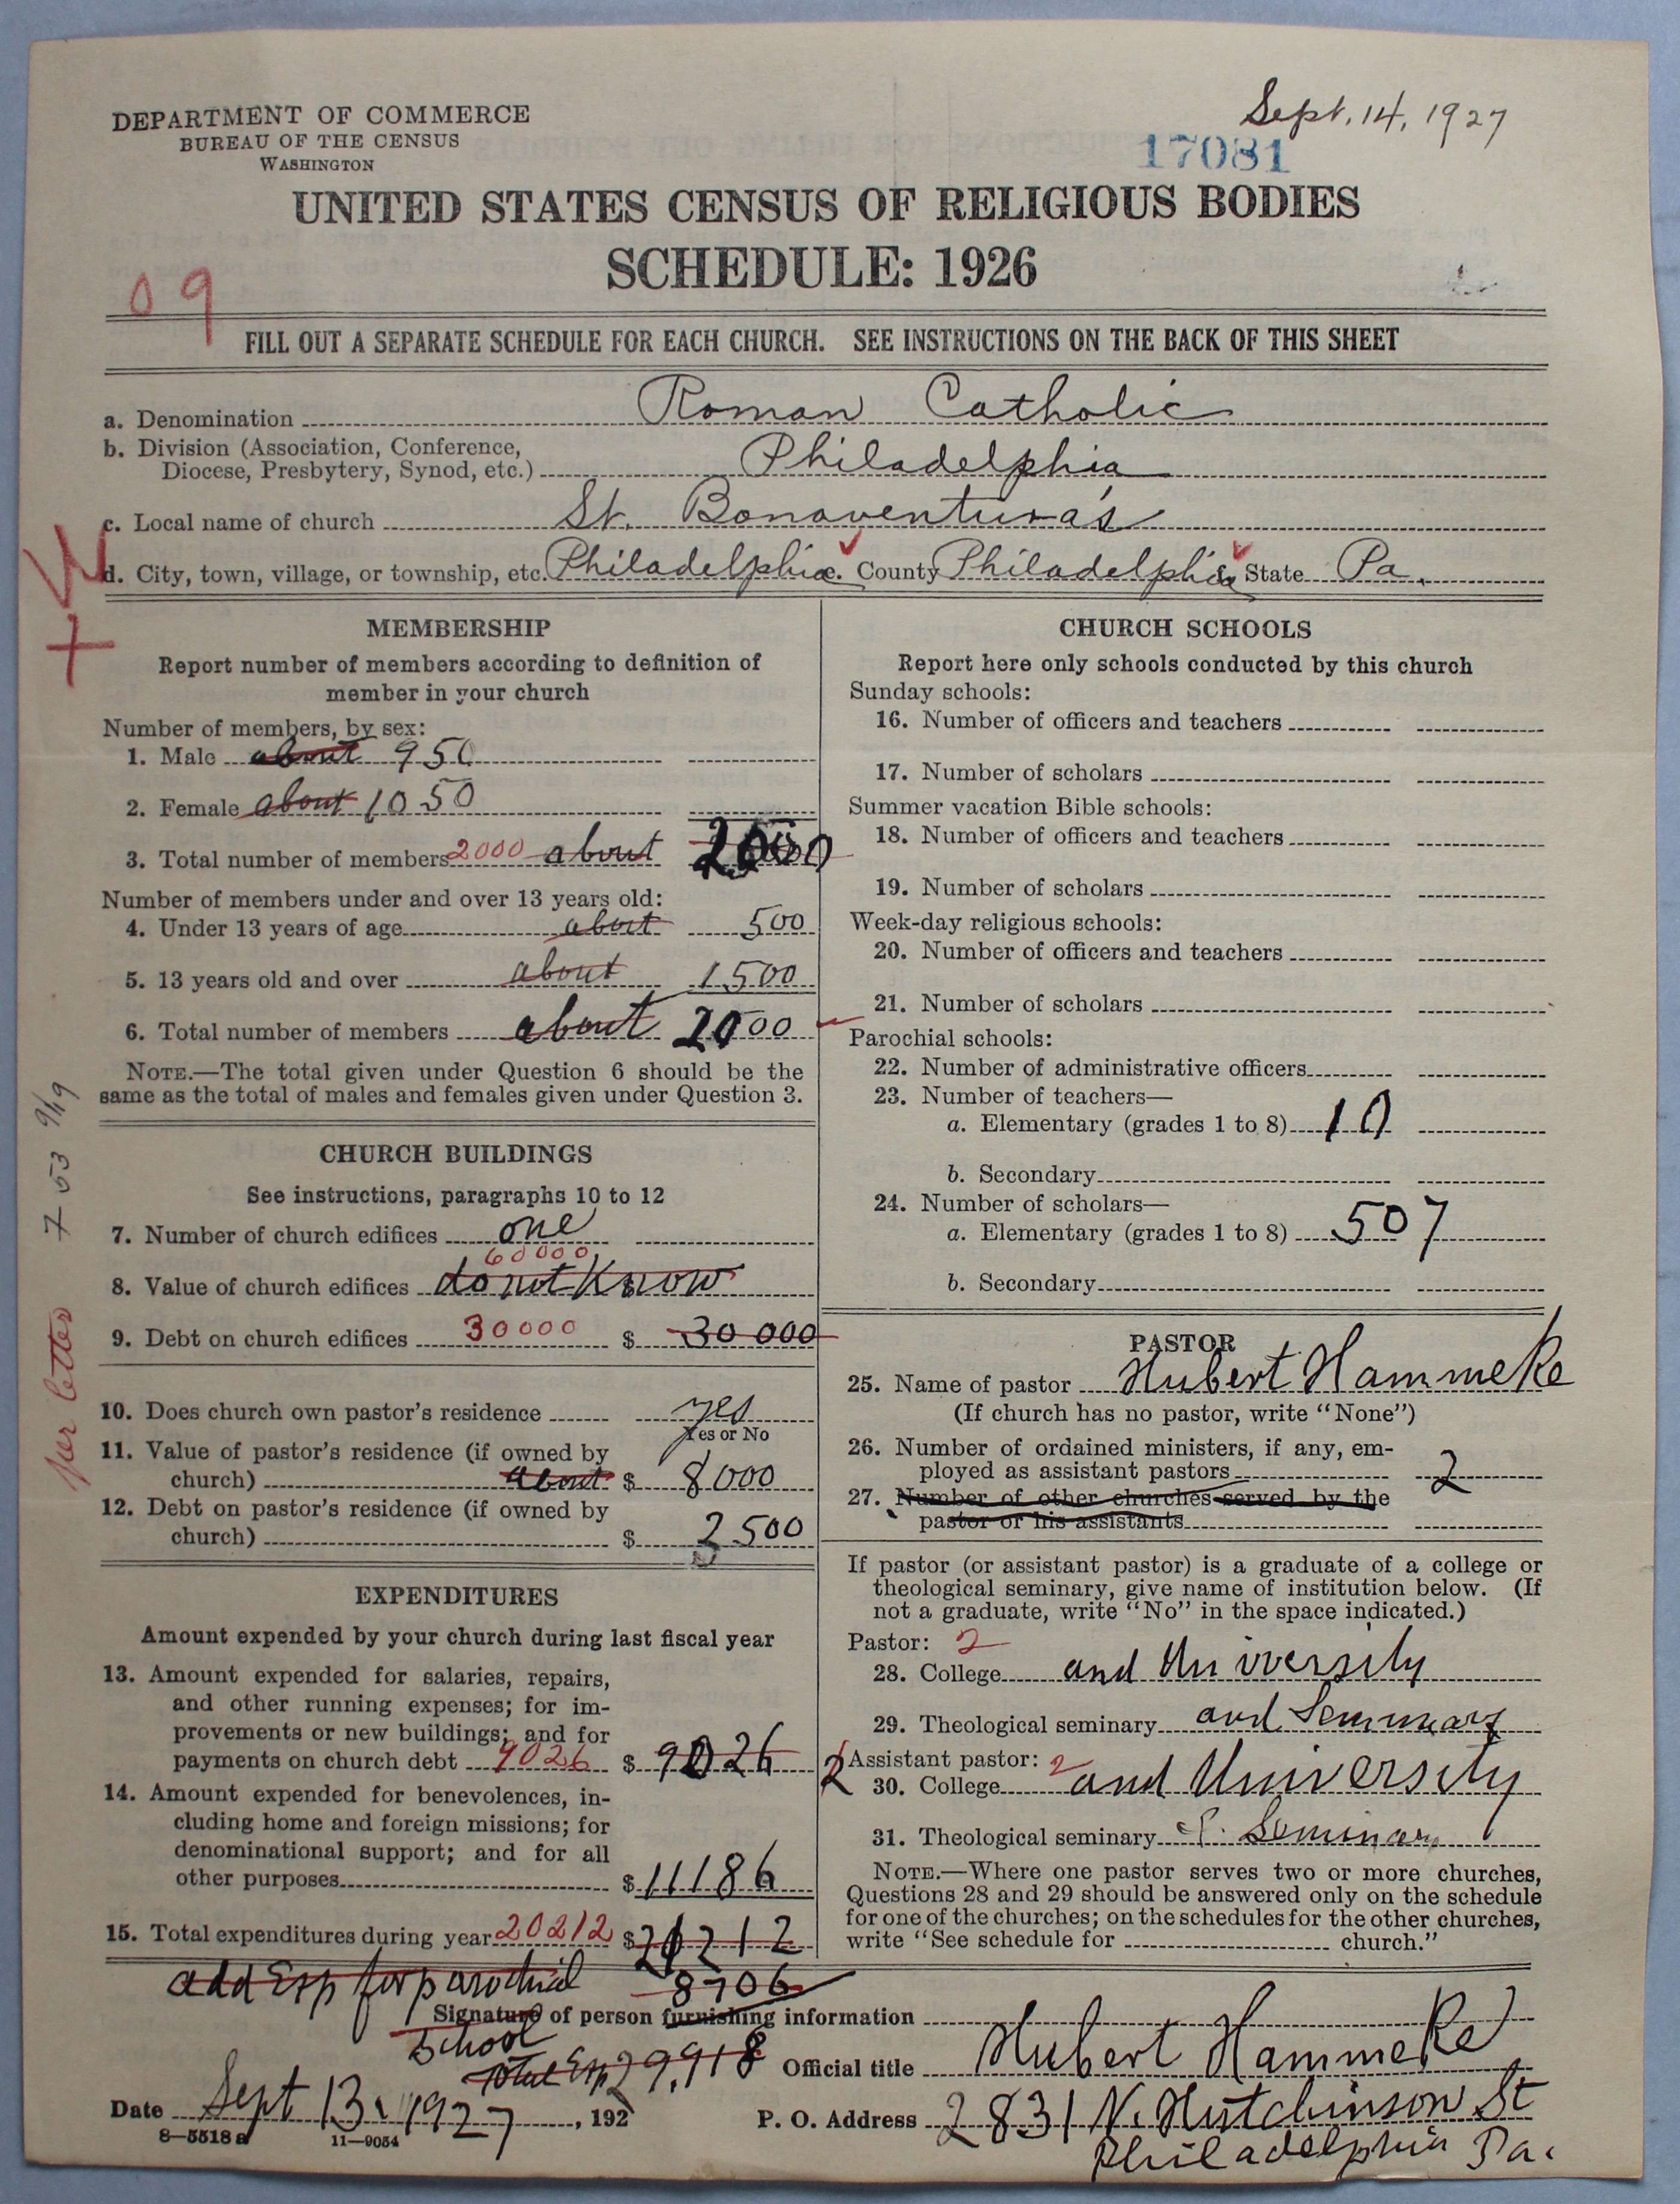 Sept. 14, 1927
DEPARTMENT OF COMMERCE
BUREAU OF THE CENSUS
WASHINGTON
17081
UNITED STATES CENSUS OF RELIGIOUS BODIES
SCHEDULE: 1926
09
FILL OUT A SEPARATE SCHEDULE FOR EACH CHURCH. SEE INSTRUCTIONS ON THE BACK OF THIS SHEET
a. Denomination Roman Catholic
b. Division (Association, Conference,
Diocese, Presbytery, Synod, etc.) Philadelphia
c. Local name of church St. Bonaventura's
d. City, town, village, or township, etc. Philadelphia e. County Philadelphia f. State Pa.
MEMBERSHIP
Report number of members according to definition of
member in your church
Number of members, by sex:
1. Male about 950
2. Female about 1050
3. Total number of members 2000 about 2000
Number of members under and over 13 years old:
4. Under 13 years of age about 500
5. 13 years old and over about 1500
6. Total number of members about 2000
NOTE.—The total given under Question 6 should be the
same as the total of males and females given under Question 3.
CHURCH BUILDINGS
See instructions, paragraphs 10 to 12
7. Number of church edifices one
60000
8. Value of church edifices do not know
9. Debt on church edifices 30000 $ 30 000
10. Does church own pastor's residence yes
Yes or No
11. Value of pastor's residence (if owned by
church) about $ 8000
12. Debt on pastor's residence (if owned by
church) $ 2500
EXPENDITURES
Amount expended by your church during last fiscal year
13. Amount expended for salaries, repairs,
and other running expenses; for im-
provements or new buildings; and for
payments on church debt 9026 $ 9026
14. Amount expended for benevolences, in-
cluding home and foreign missions; for
denominational support; and for all
other purposes $ 11186
15. Total expenditures during year 20212 $ 20212
add Exp for parochial 8706
school
Total Exp 29,918
per letter
7 53 9/19
CHURCH SCHOOLS
Report here only schools conducted by this church
Sunday schools:
16. Number of officers and teachers
17. Number of scholars
Summer vacation Bible schools:
18. Number of officers and teachers
19. Number of scholars
Week-day religious schools:
20. Number of officers and teachers
21. Number of scholars
Parochial schools:
22. Number of administrative officers
23. Number of teachers—
a. Elementary (grades 1 to 8) 10
b. Secondary
24. Number of scholars—
a. Elementary (grades 1 to 8) 507
b. Secondary
PASTOR
25. Name of pastor Hubert Hammeke
(If church has no pastor, write "None")
26. Number of ordained ministers, if any, em-
ployed as assistant pastors 2
27. Number of other churches served by the
pastor or his assistants
If pastor (or assistant pastor) is a graduate of a college or
theological seminary, give name of institution below. (If
not a graduate, write "No" in the space indicated.)
Pastor: 2
28. College and University
29. Theological seminary and Seminary
2 Assistant pastor: 2
30. College and University
31. Theological seminary Seminary
NOTE.—Where one pastor serves two or more churches,
Questions 28 and 29 should be answered only on the schedule
for one of the churches; on the schedules for the other churches,
write "See schedule for church."
Signature of person furnishing information
Official title Hubert Hammeke
Date Sept 13. 1927, 192
P. O. Address 2831 N. Hutchinson St
Philadelphia Pa.
8—5518a
11—9054